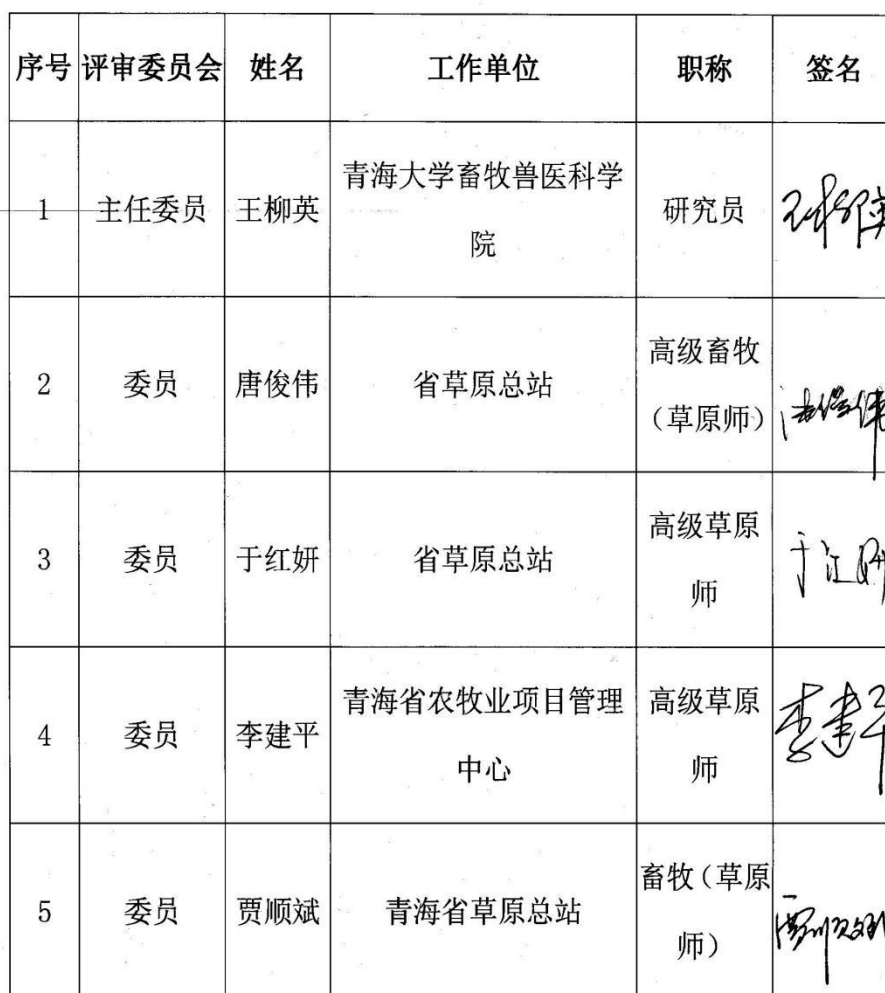 序号 评审委员会 姓名 工作单位 职称 签名
1 主任委员 王柳英 青海大学畜牧兽医科学院 研究员 王柳英
2 委员 唐俊伟 省草原总站 高级畜牧（草原师） 唐俊伟
3 委员 于红妍 省草原总站 高级草原师 于红妍
4 委员 李建平 青海省农牧业项目管理中心 高级草原师 李建平
5 委员 贾顺斌 青海省草原总站 畜牧（草原师） 贾顺斌